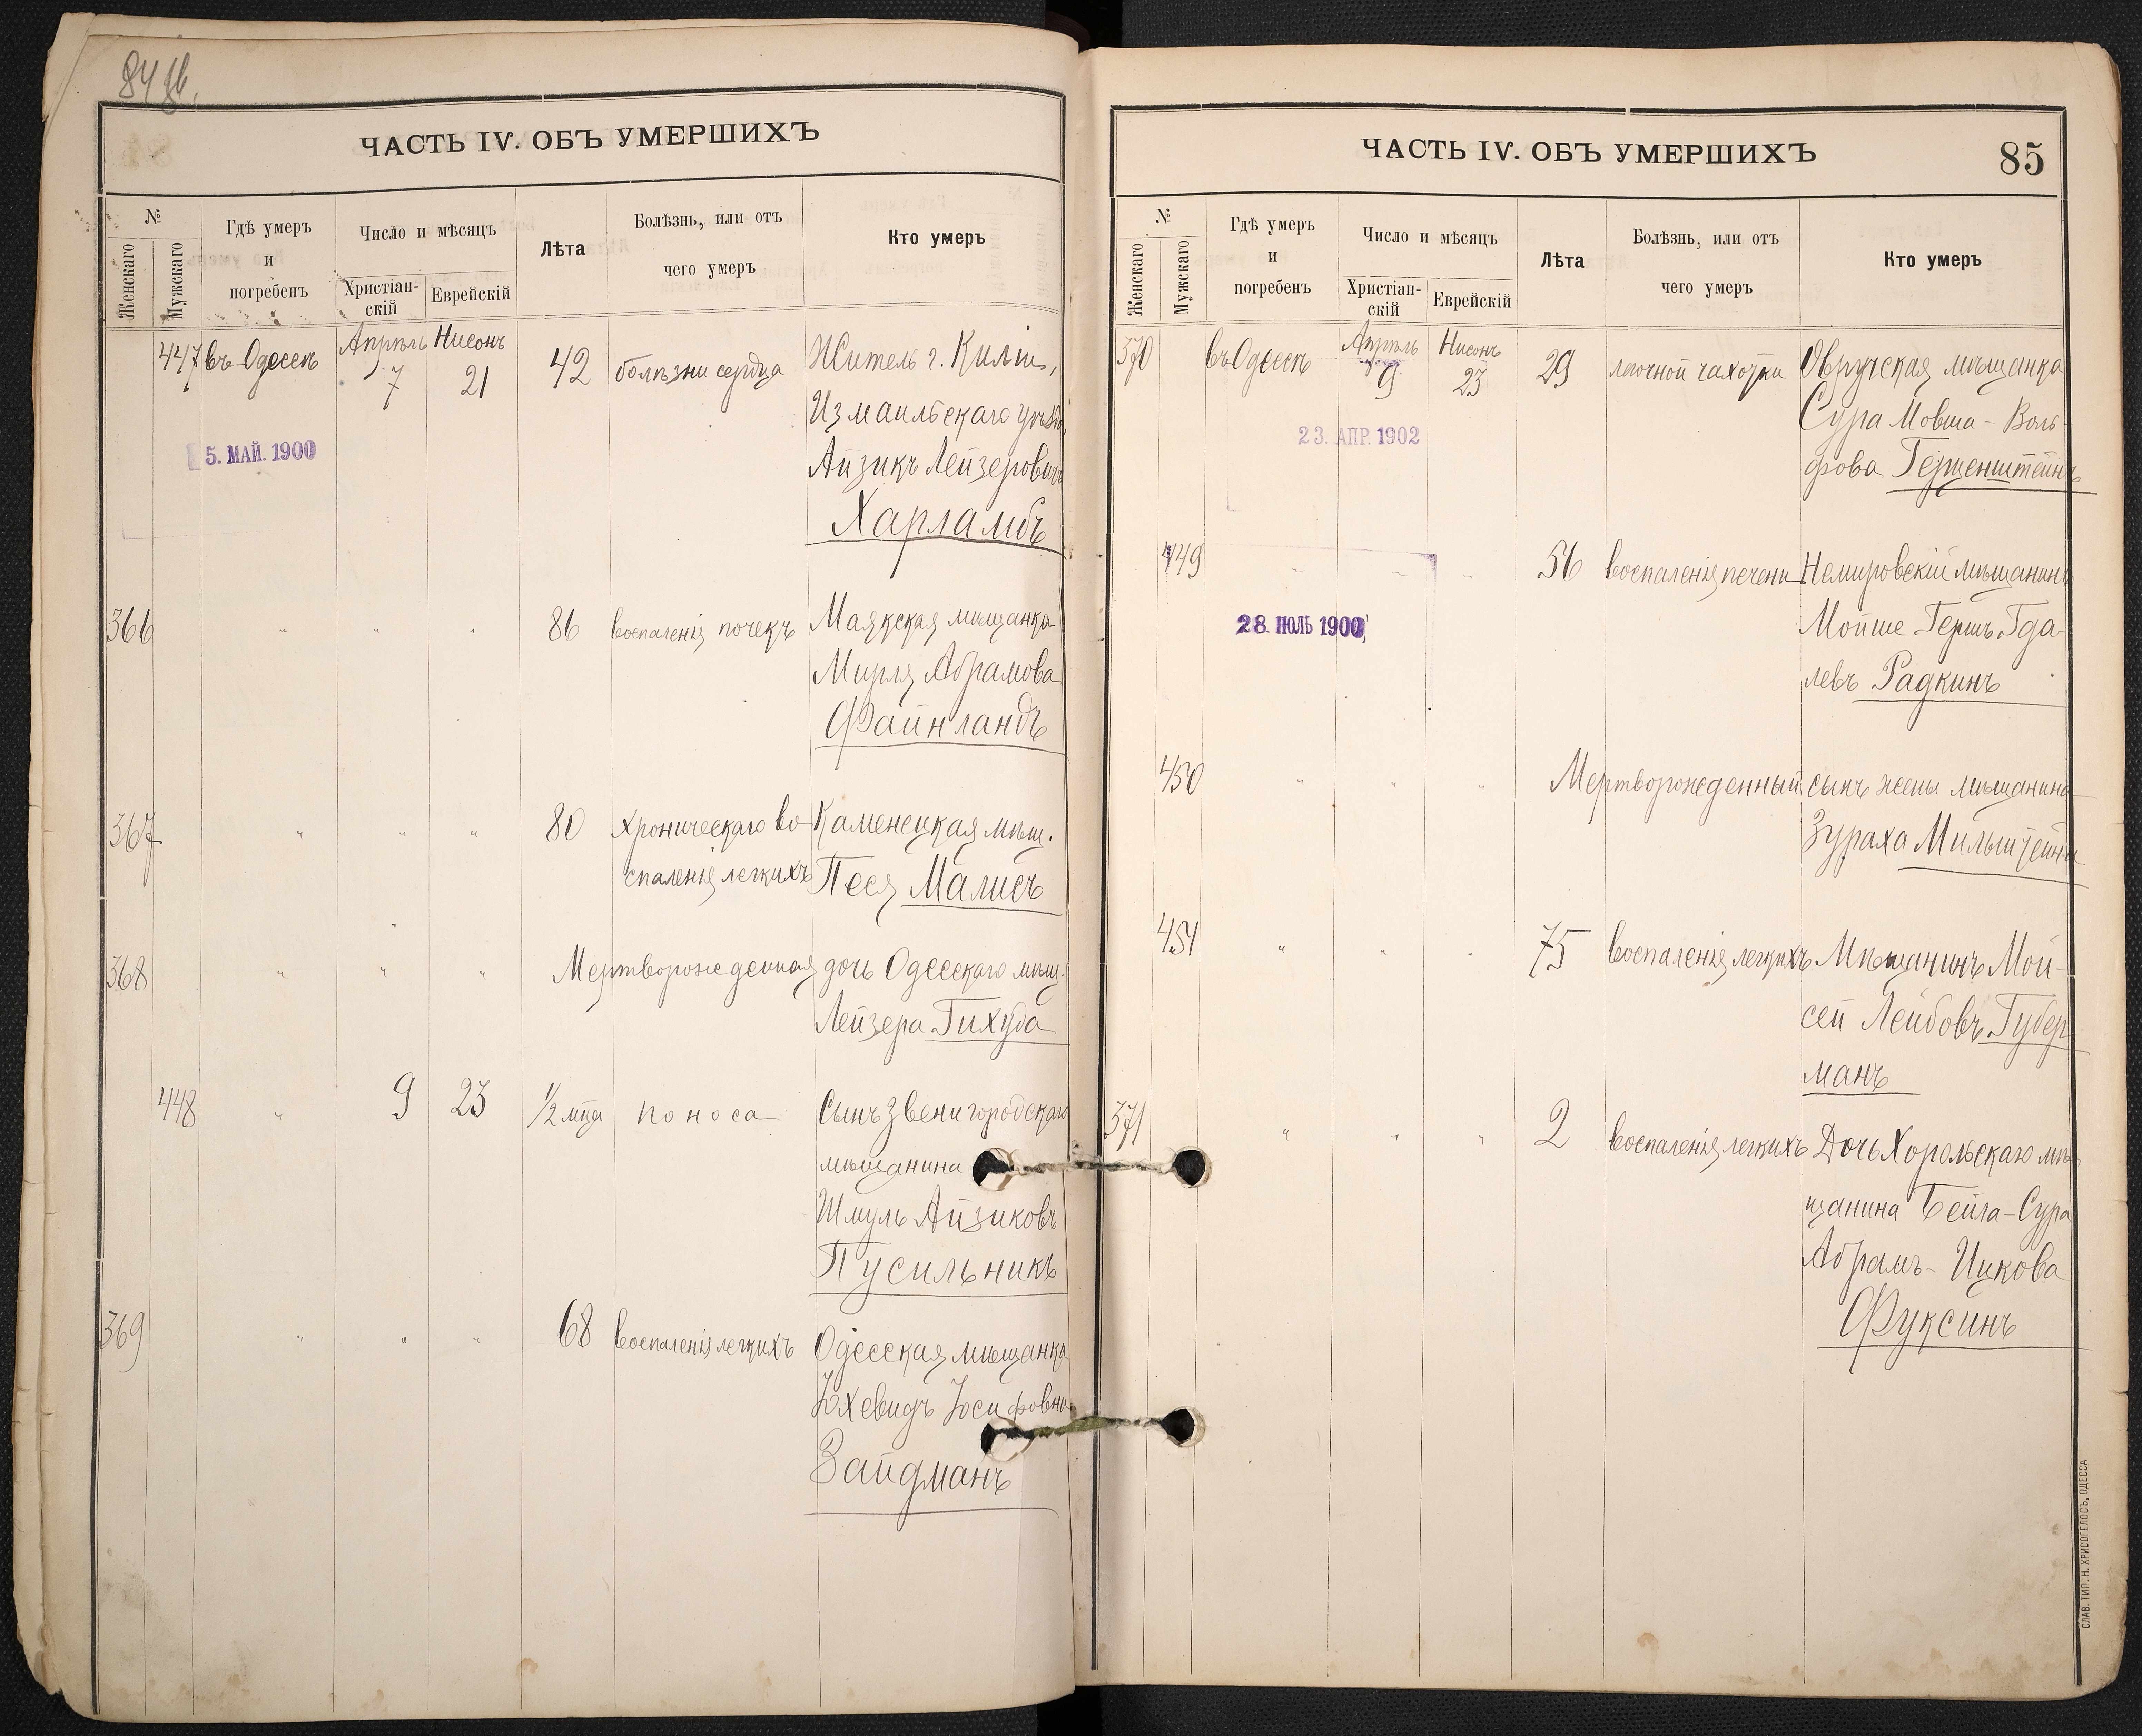 84 об.
ЧАСТЬ IV. ОБЪ УМЕРШИХЪ
№
Женскаго
Мужскаго
Гдѣ умеръ
и
погребенъ
Число и мѣсяцъ
Христіан-
скій
Еврейскій
Лѣта
Болѣзнь, или отъ
чего умеръ
Кто умеръ
447 въ Одессѣ Апрѣль 7 Нисонъ 21 42 болѣзни сердца Житель г. Киліи,
Измаильскаго уѣзда
Айзикъ Лейзеровичъ
Харламбъ
5. МАЙ. 1900
366 " " " 86 воспаленія почекъ Маякская мѣщанка
Мирля Абрамова
Файнландъ
367 " " " 80 Хроническаго во- Каменецкая мѣщ.
спаленія легкихъ Песя Малисъ
368 " " " Мертворожденная дочь Одесскаго мѣщ.
Лейзера Гихуда
448 " 9 23 1/2 мца поноса Сынъ Звенигородскаго
мѣщанина
Шмуль Айзиковъ
Пусильникъ
369 " " " 68 воспаленія легкихъ Одесская мѣщанка
Іохевидъ Іосифовна
Зайдманъ
ЧАСТЬ IV. ОБЪ УМЕРШИХЪ
85
№
Женскаго
Мужскаго
Гдѣ умеръ
и
погребенъ
Число и мѣсяцъ
Христіан-
скій
Еврейскій
Лѣта
Болѣзнь, или отъ
чего умеръ
Кто умеръ
370 въ Одессѣ Апрѣль 9 Нисонъ 23 29 легочной чахотки Овручская мѣщанка
Сура Мовша-Воль-
фова Гершенштейнъ
23. АПР. 1902
449 " " " 56 воспаленія печени Немировскій мѣщанинъ
Мойше-Гершъ Гда-
левъ Радкинъ
28. ІЮЛЬ 1900
450 " " " Мертворожденный сынъ жены мѣщанина
Зураха Мильштейна
451 " " " 75 воспаленія легкихъ Мѣщанинъ Мой-
сей Лейбовъ Губер
манъ
371 " " " 2 воспаленія легкихъ Дочь Хорольскаго мѣ
щанина Бейла-Сура
Абрамъ-Ицкова
Фуксинъ
СЛАВ. ТИП. Н. ХРИСОГЕЛОСЪ, ОДЕССА